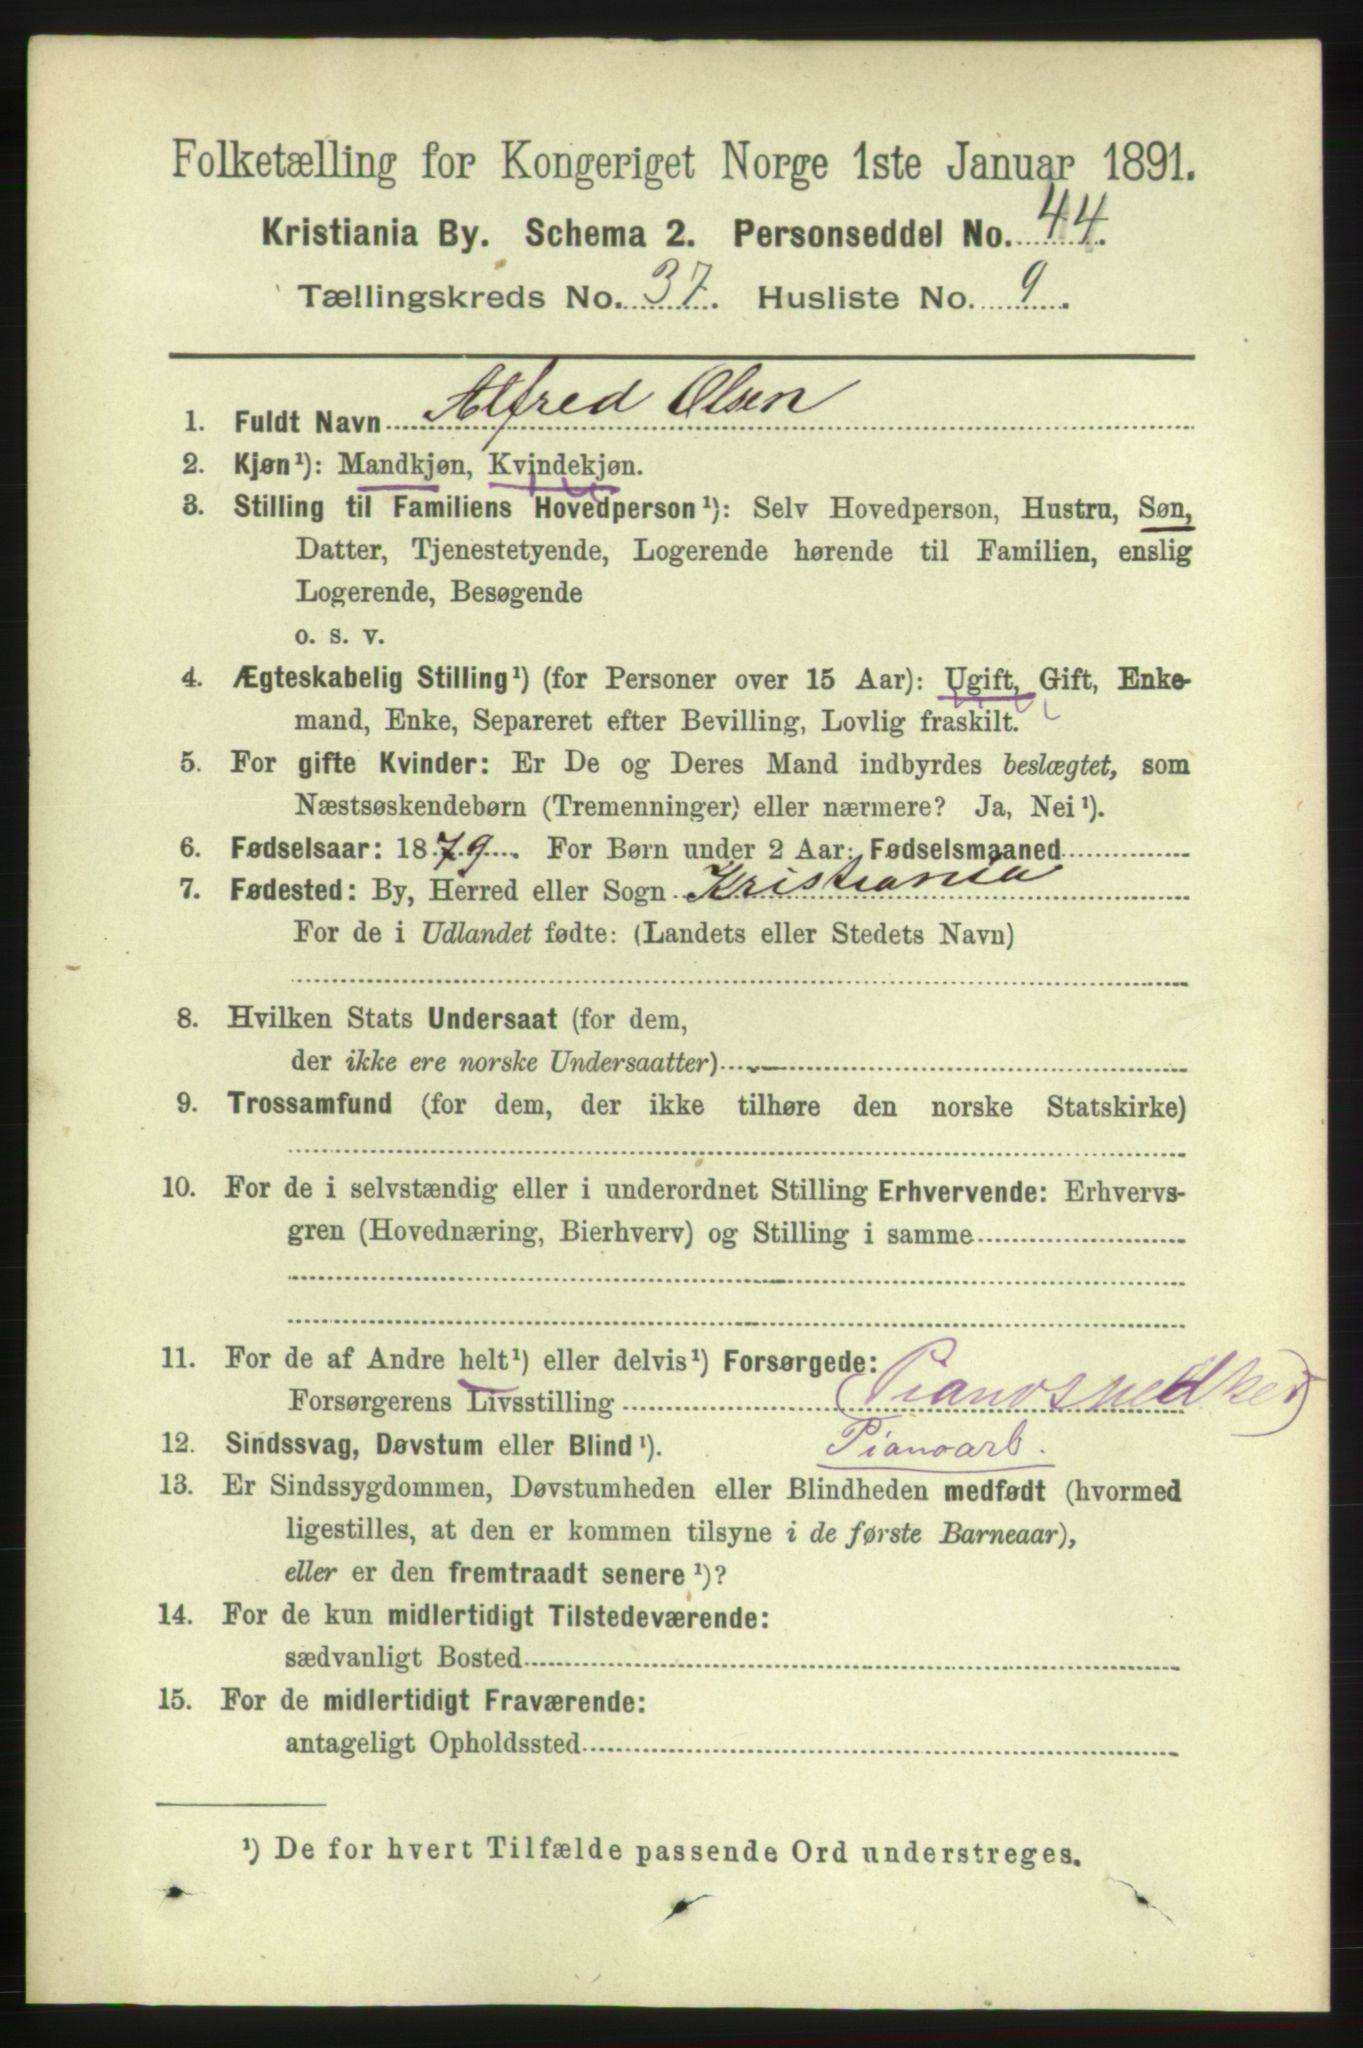 Folketælling for Kongeriget Norge 1ste Januar 1891.
Kristiania By. Schema 2. Personseddel No. 44.
Tællingskreds No. 37. Husliste No. 9.
1. Fuldt Navn Alfred Olsen
2. Kjøn¹): Mandkjøn, Kvindekjøn.
3. Stilling til Familiens Hovedperson¹): Selv Hovedperson, Hustru, Søn,
Datter, Tjenestetyende, Logerende hørende til Familien, enslig
Logerende, Besøgende
o. s. v.
4. Ægteskabelig Stilling¹) (for Personer over 15 Aar): Ugift, Gift, Enke-
mand, Enke, Separeret efter Bevilling, Lovlig fraskilt.
5. For gifte Kvinder: Er De og Deres Mand indbyrdes beslægtet, som
Næstsøskendebørn (Tremenninger) eller nærmere? Ja, Nei¹).
6. Fødselsaar: 1879. For Børn under 2 Aar: Fødselsmaaned
7. Fødested: By, Herred eller Sogn Kristiania
For de i Udlandet fødte: (Landets eller Stedets Navn)
8. Hvilken Stats Undersaat (for dem,
der ikke ere norske Undersaatter)
9. Trossamfund (for dem, der ikke tilhøre den norske Statskirke)
10. For de i selvstændig eller i underordnet Stilling Erhvervende: Erhvervs-
gren (Hovednæring, Bierhverv) og Stilling i samme
11. For de af Andre helt¹) eller delvis¹) Forsørgede:
Forsørgerens Livsstilling (Pianosnedker)
12. Sindssvag, Døvstum eller Blind¹). Pianoarb.
13. Er Sindssygdommen, Døvstumheden eller Blindheden medfødt (hvormed
ligestilles, at den er kommen tilsyne i de første Barneaar),
eller er den fremtraadt senere¹)?
14. For de kun midlertidigt Tilstedeværende:
sædvanligt Bosted
15. For de midlertidigt Fraværende:
antageligt Opholdssted
¹) De for hvert Tilfælde passende Ord understreges.